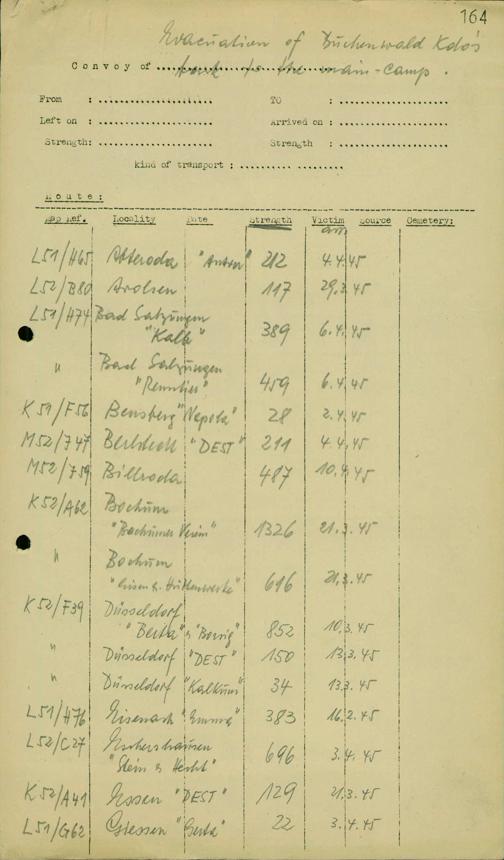 164
Evacuation of Buchenwald Kdo's
Convoy of back to the main-camp.
From : .................... TO : ....................
Left on : .................... Arrived on : ....................
Strength: .................... Strength : ....................
kind of transport : ....................
Route:
Map Ref. Locality Date Strength Victim Source Cemetery:
arr.
L51/H65 Abteroda "Anton" 212 4.4.45
L52/B80 Arolsen 117 29.3.45
L51/H74 Bad Salzungen
"Kalb" 389 6.4.45
" Bad Salzungen
"Renntier" 459 6.4.45
K51/F56 Bensberg "Napola" 28 2.4.45
M52/J47 Berlstedt "DEST" 211 4.4.45
M52/J59 Billroda 487 10.4.45
K52/A62 Bochum
"Bochumer Verein" 1326 21.3.45
" Bochum
"Eisen & Hüttenwerke" 616 21.3.45
K52/F39 Düsseldorf
"Berta" & "Borsig" 852 10.3.45
" Düsseldorf "DEST" 150 13.3.45
" Düsseldorf "Kalkum" 34 13.3.45
L51/H76 Eisenach "Emma" 383 16.2.45
L52/C27 Eschershausen
"Stein & Hecht" 696 3.4.45
K52/A41 Essen "DEST" 129 21.3.45
L51/G62 Giessen "Gerta" 22 3.4.45